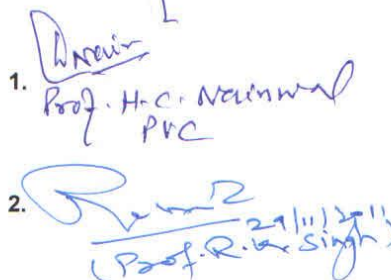 1.
Prof. H. C. Nainwal
PVC
2.
29/11/2011
(Prof. R. K. Singh)